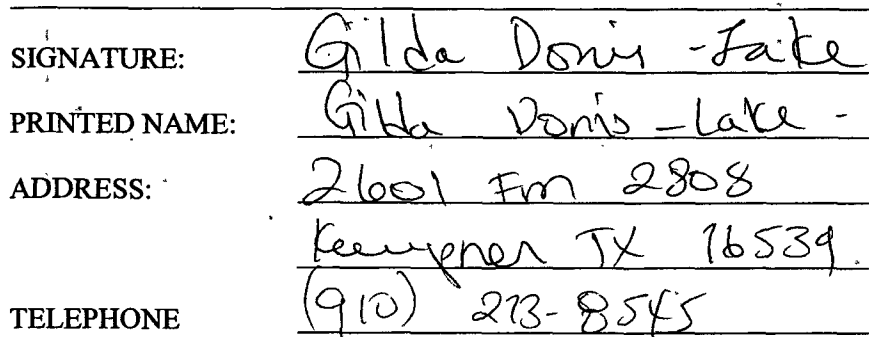 SIGNATURE: Gilda Donis - Lake
PRINTED NAME: Gilda Donis - Lake -
ADDRESS: 2601 Fm 2808
Kempner TX 76539.
TELEPHONE (910) 273-8545